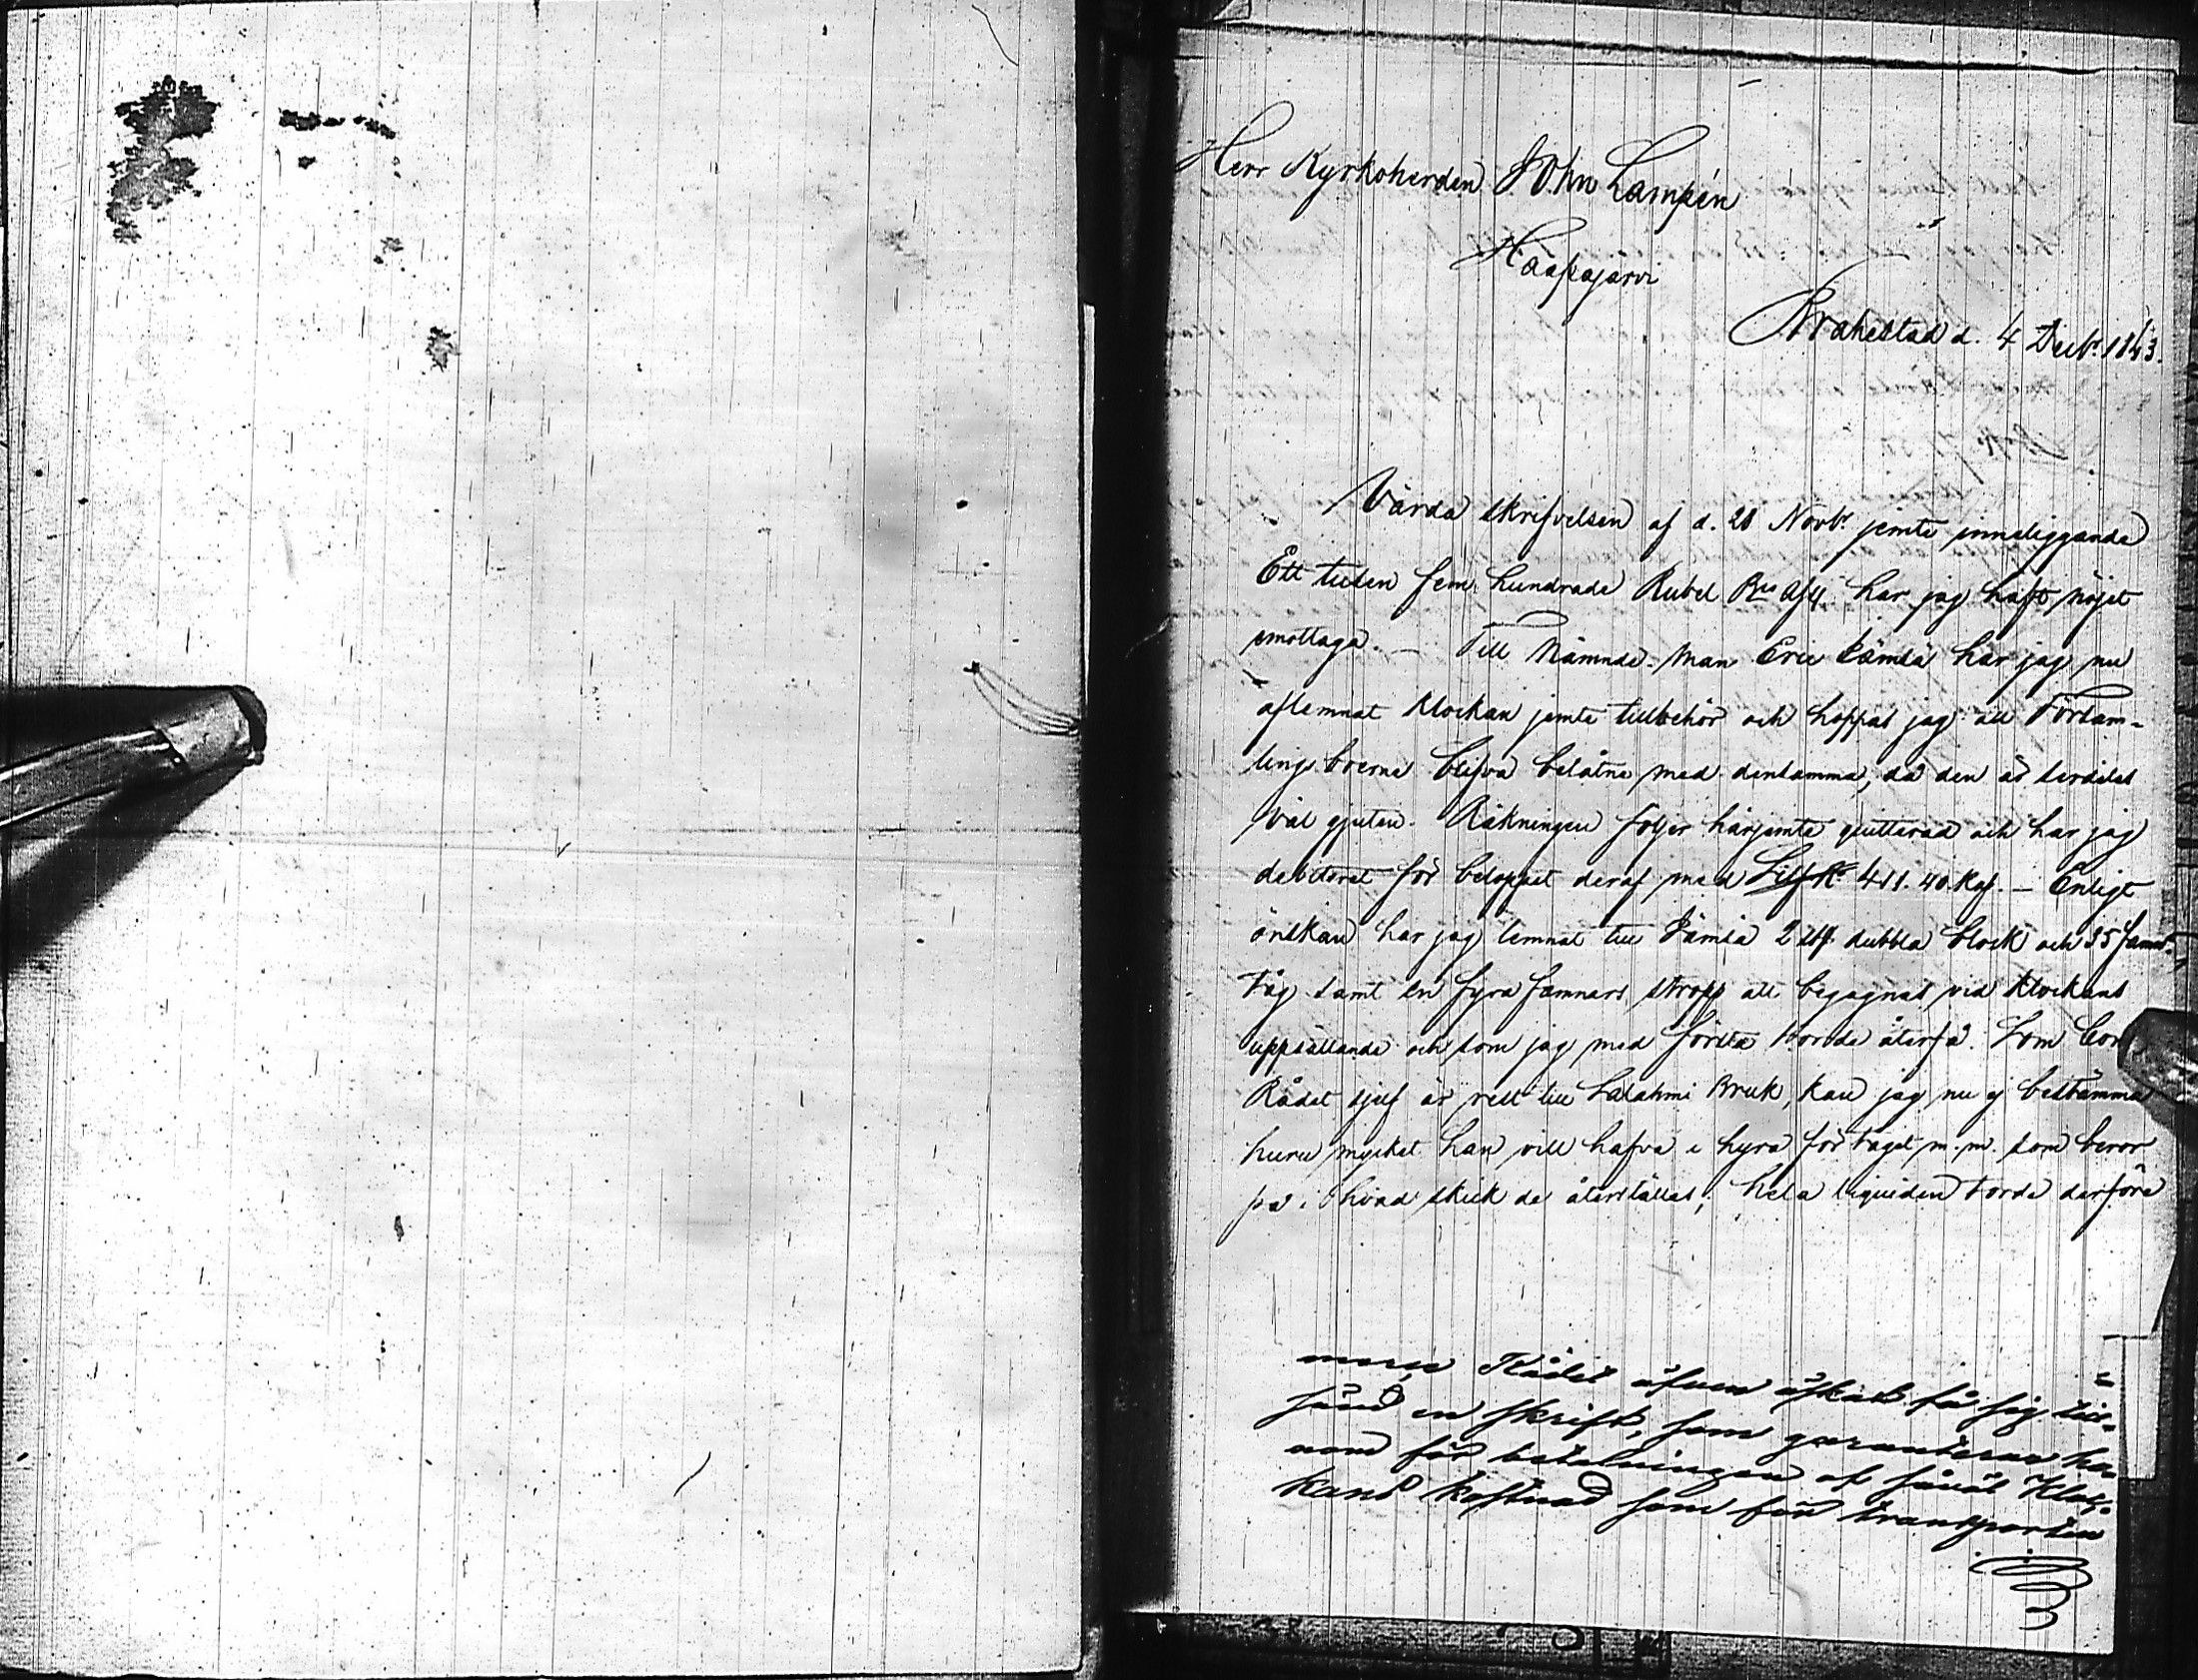 Herr Kyrkoherden Joh:n Lampén
Haapajärvi
Brahestad d. 4 Decbr. 1843.
Värda skrifvelsen af d. 28 Novbr. jemte inneliggande
Ett tusen fem hundrade Rubel Bco Ass. har jag haft nöjet
emottaga. – Till Nämnde-man Eric Jämsä har jag nu
aflemnat klockan jemte tillbehör och hoppas jag att Försam-
lings boerne blifva belåtne med densamma, då den är serdeles
väl gjuten. Räkningen följer härjemte quitterad och har jag
debiteret för beloppet deraf med Silf Ro 411. 40 Kop. – Enligt
önskan har jag lemnat till Jämsä 2 st. dubbla block och 35 famr.
Tåg samt en fyra famnars stropp att begagnas vid klockans
uppsättande och som jag med första torde återfå. Som Com
Rådet sjelf är rest till Salahmi Bruk, kan jag nu ej bestämma
huru mycket han vill hafva i hyra för taget m. m. som beror
på i hvad skick de återställas; hela liquiden torde derföre
merce Rådet äfven äskat få sig till-
sänd en skrift, som garanterar ho-
nom för betalningen af såväl Kloc-
kans kostnad som för transporten